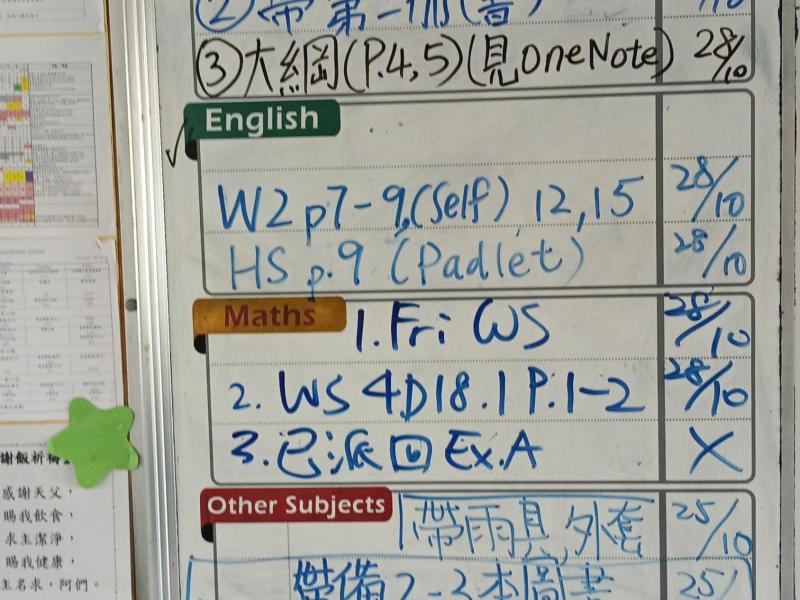 ② 帶第二
③大綱(P.4,5)(見OneNote) 28/10
English
W2 p7-9,(Self) 12,15 28/10
HS p.9 (Padlet) 28/10
Maths
1. Fri WS 28/10
2. WS 4D18.1 P.1-2 28/10
3. 已派回 Ex.A X
Other Subjects
帶雨具,外套 25/10
帶備2-3本圖書 25/
感謝天父，
賜我飲食，
求主潔淨，
賜我健康，
主名求，阿們。
謝飯祈禱